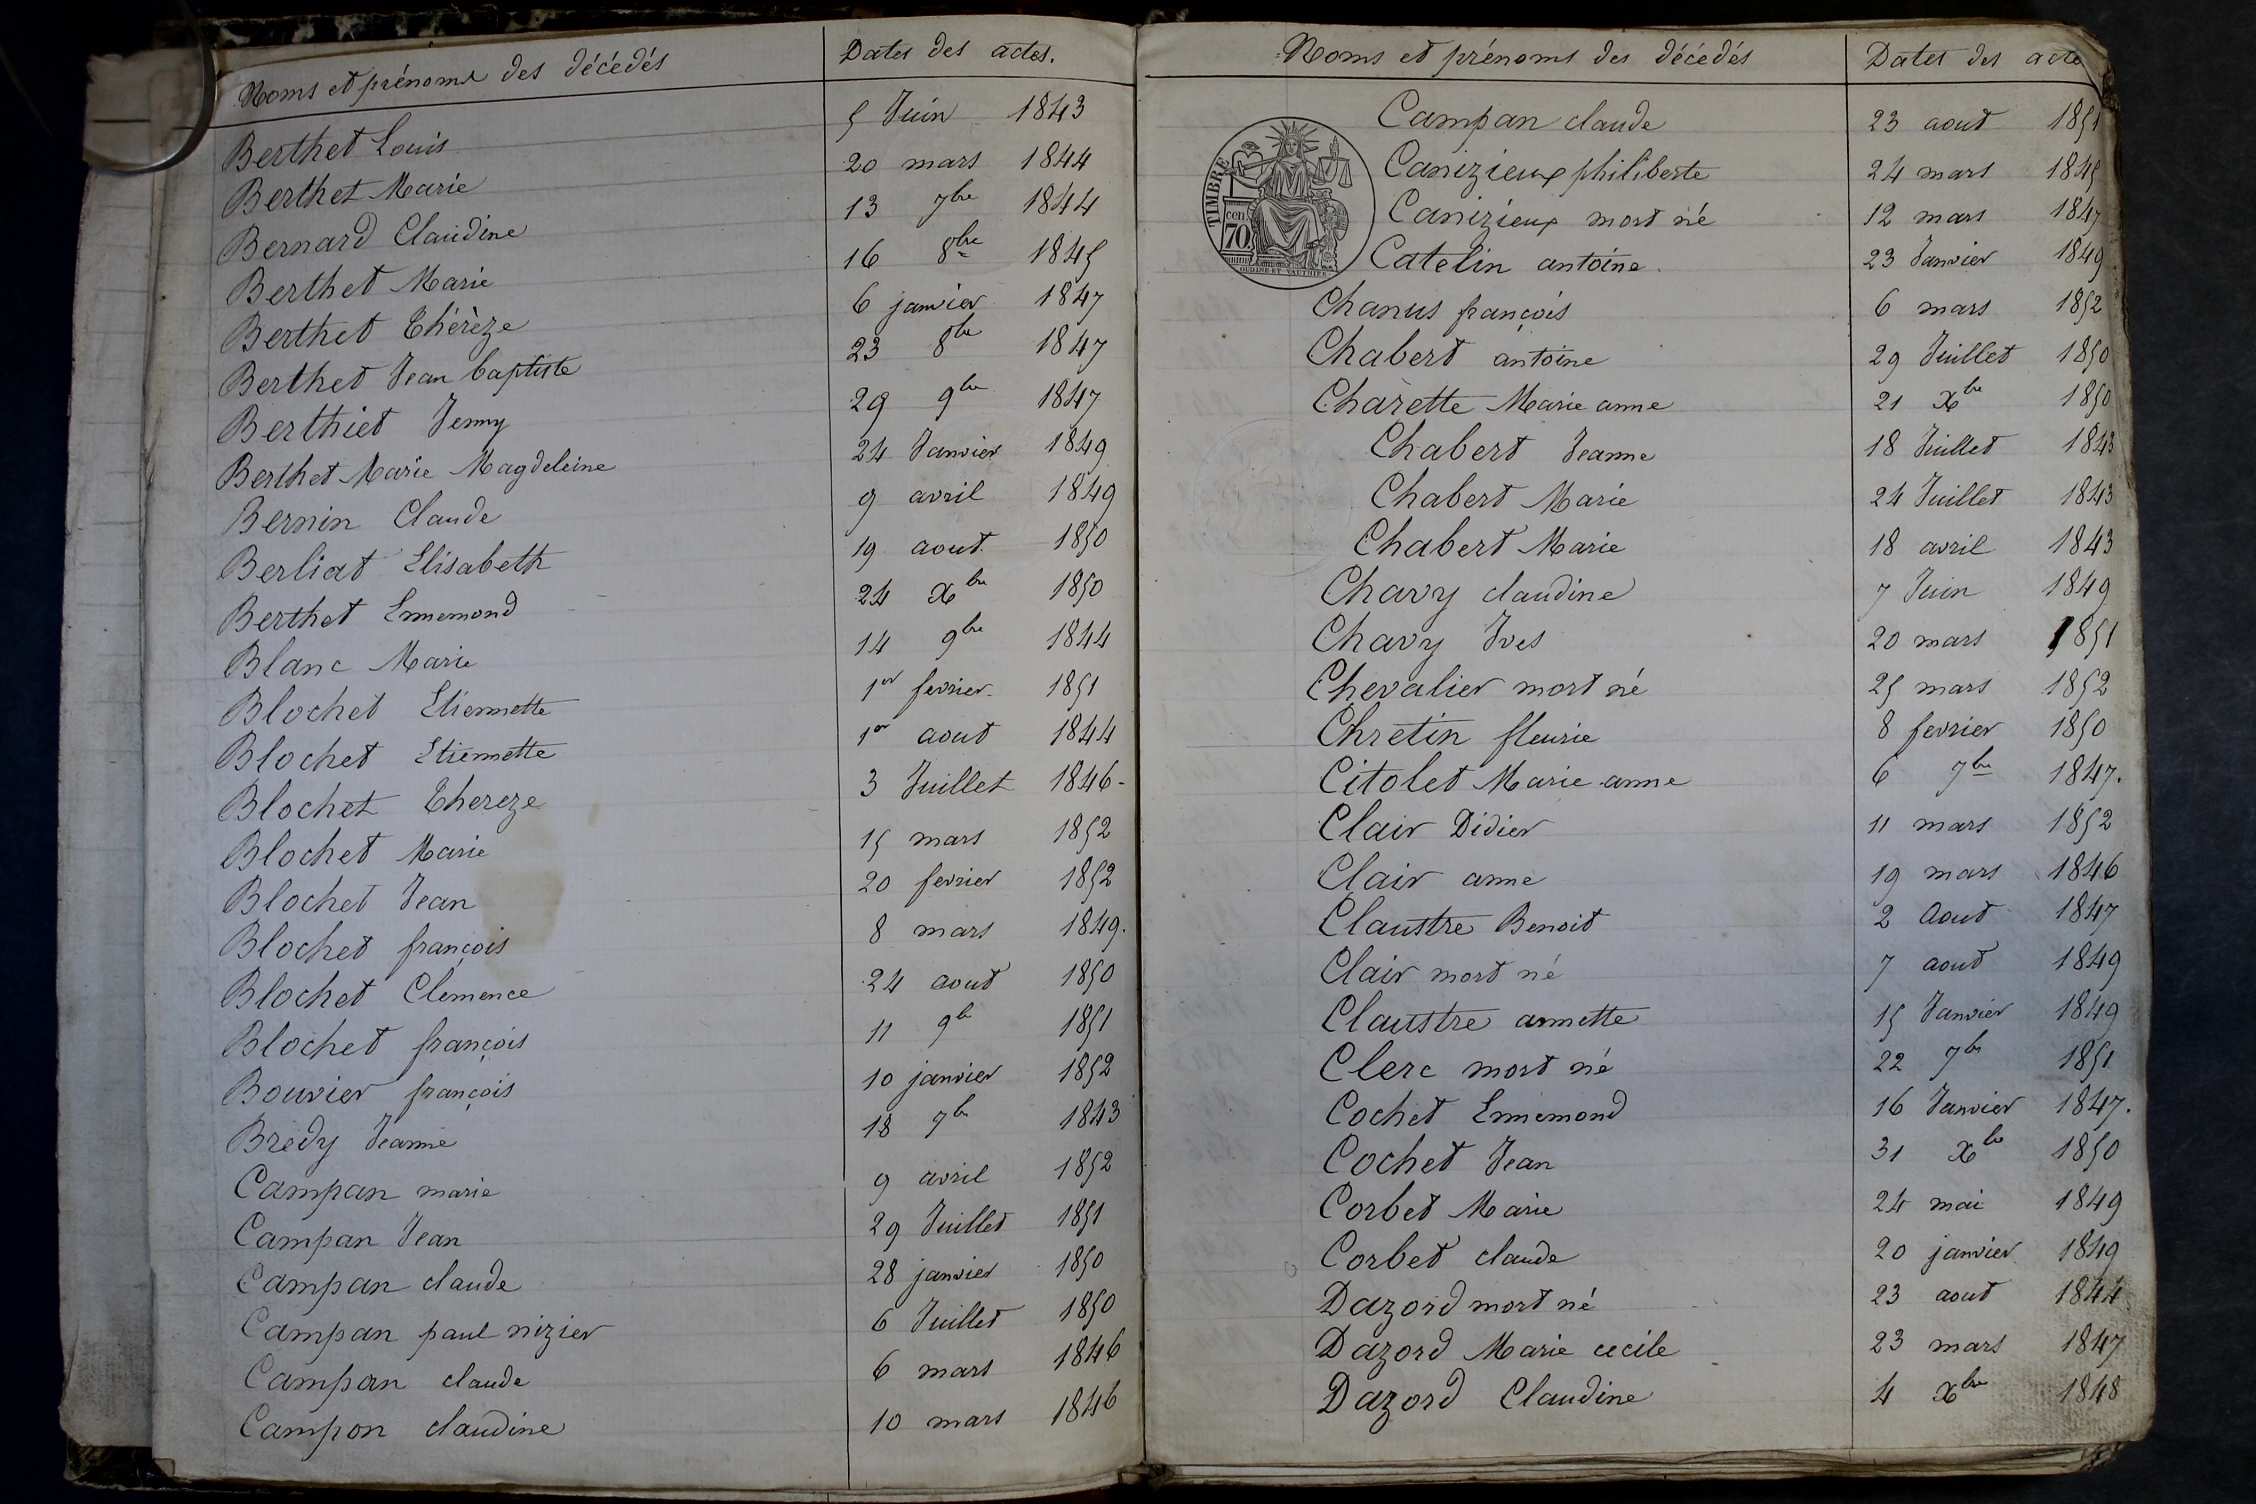 Noms et prénoms des décédés Dates des actes.
Berthet Louis 5 Juin 1843
Berthet Marie 20 mars 1844
Bernard Claudine 13 7bre 1844
Berthet Marie 16 8bre 1845
Berthet Thérèze 6 janvier 1847
Berthet Jean baptiste 23 8bre 1847
Berthiet Jenny 29 9bre 1847
Berthet Marie Magdeleine 24 Janvier 1849
Bernin Claude 9 avril 1849
Berliat Elisabeth 19 aout 1850
Berthet Ennemond 24 Xbre 1850
Blanc Marie 14 9bre 1844
Blochet Etiennette 1er fevrier 1851
Blochet Etiennette 1er aout 1844
Blochet Thereze 3 Juillet 1846-
Blochet Marie 15 mars 1852
Blochet Jean 20 fevrier 1852
Blochet françois 8 mars 1849.
Blochet Clémence 24 aout 1850
Blochet françois 11 9b 1851
Bouvier françois 10 janvier 1852
Bredy Jeanne 18 7br 1843
Campan marie 9 avril 1852
Campan Jean 29 Juillet 1851
Campan claude 28 janvier 1850
Campan paul nizier 6 Juillet 1850
Campan claude 6 mars 1846
Campon claudine 10 mars 1846
Noms et prénoms des décédés Dates des acte
Campan claude 23 aout 1851
TIMBRE
cen
70.
OUDINE ET VAUTHIER
Canizieux philiberte 24 mars 1845
Canizieux mort né 12 mars 1847
Catelin antoine 23 Janvier 1849
Chanus françois 6 mars 1852
Chabert antoine 29 Juillet 1850
Charette Marie anne 21 Xbre 1850
Chabert Jeanne 18 Juillet 1843
Chabert Marie 24 Juillet 1843
Chabert Marie 18 avril 1843
Chavy claudine 7 Juin 1849
Chavy Ives 20 mars 1851
Chevalier mort né 25 mars 1852
Chretin fleurie 8 fevrier 1850
Citolet Marie anne 6 7bre 1847.
Clair Didier 11 mars 1852
Clair anne 19 mars 1846
Claustre Benoit 2 Aout 1847
Clair mort né 7 aout 1849
Claustre annette 15 Janvier 1849
Clerc mort né 22 7br 1851
Cochet Ennemond 16 Janvier 1847.
Cochet Jean 31 Xbr 1850
Corbet Marie 24 mai 1849
Corbet claude 20 janvier 1849
Dazord mort né 23 aout 1844
Dazord Marie cecile 23 mars 1847
Dazord Claudine 4 Xbre 1848